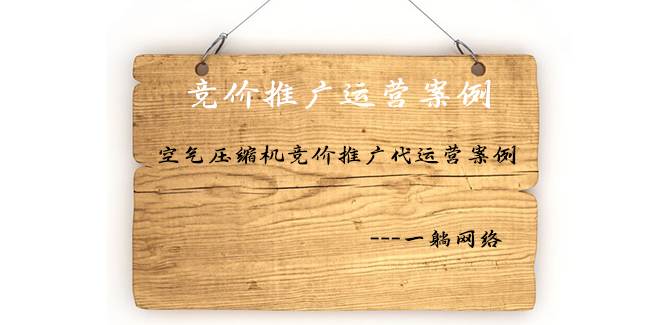 竞价推广运营案例
空气压缩机竞价推广代运营案例
---一躺网络